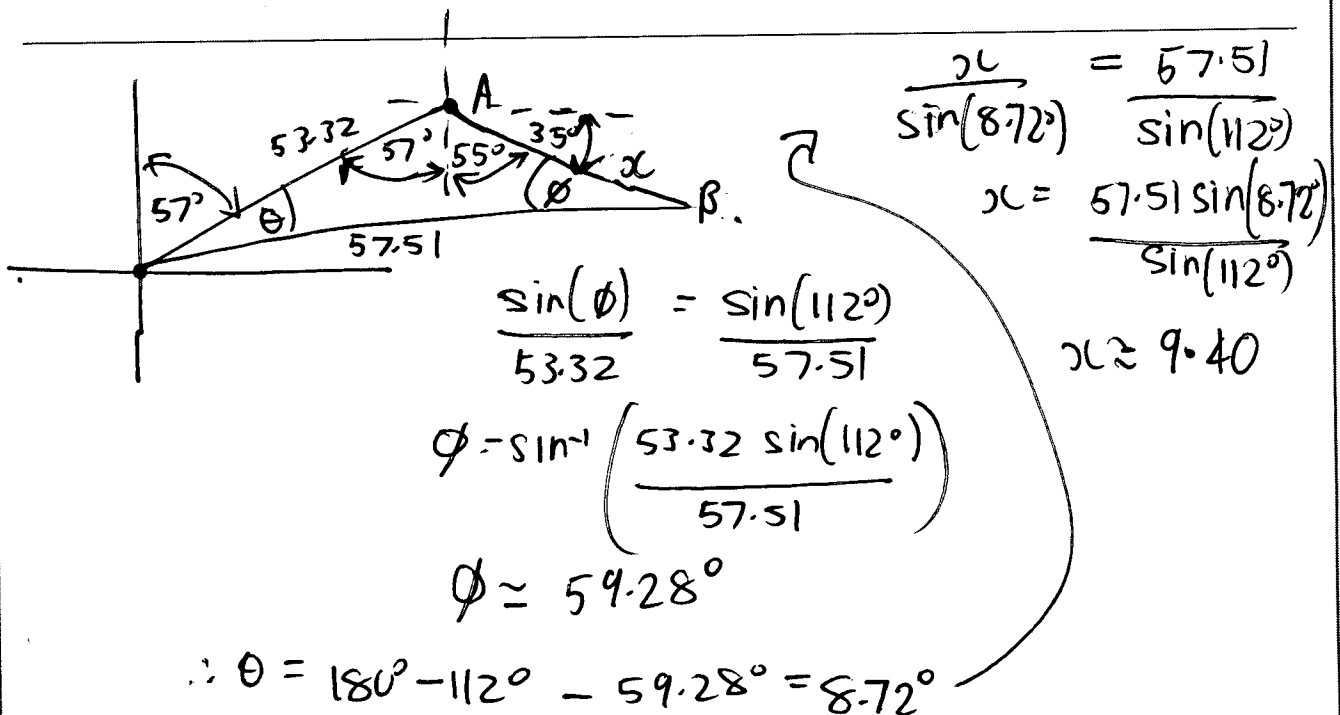 A
53.32
57°
55°
35°
x
57°
θ
ϕ
B.
57.51
sin(ϕ)/53.32 = sin(112°)/57.51
ϕ = sin⁻¹(53.32 sin(112°)/57.51)
ϕ ≃ 59.28°
∴ θ = 180° - 112° - 59.28° = 8.72°
x/sin(8.72°) = 57.51/sin(112°)
x = 57.51 sin(8.72°)/sin(112°)
x ≈ 9.40